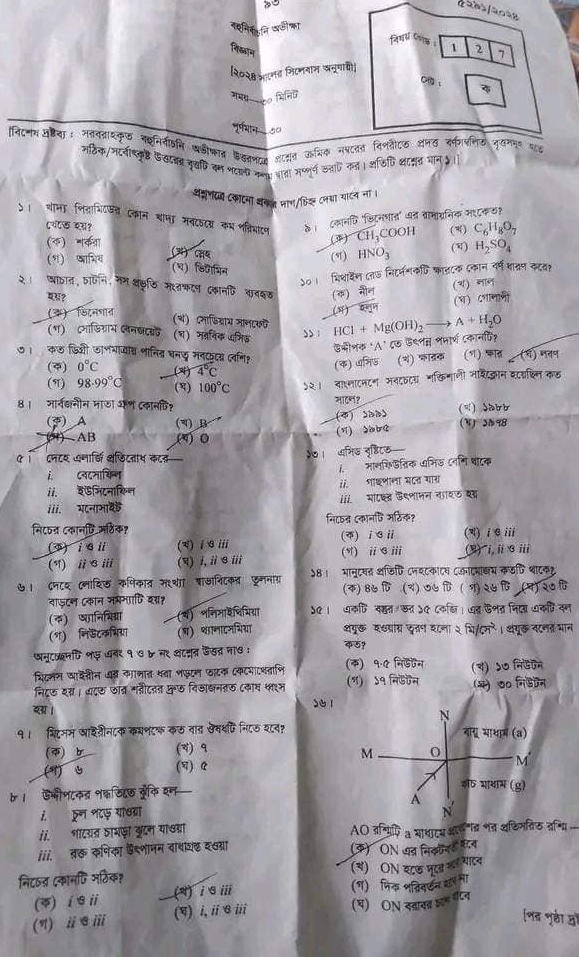 বহুনির্বাচনি অভীক্ষা
বিজ্ঞান
[২০২৪ সালের সিলেবাস অনুযায়ী]
সময়—৩০ মিনিট
পূর্ণমান—৩০
বিষয় কোড : 1 2 7
সেট : ক
[বিশেষ দ্রষ্টব্য : সরবরাহকৃত বহুনির্বাচনি অভীক্ষার উত্তরপত্রে প্রশ্নের ক্রমিক নম্বরের বিপরীতে প্রদত্ত বর্ণসংবলিত বৃত্তসমূহ হতে
সঠিক/সর্বোৎকৃষ্ট উত্তরের বৃত্তটি বল পয়েন্ট কলম দ্বারা সম্পূর্ণ ভরাট কর। প্রতিটি প্রশ্নের মান ১।]
প্রশ্নপত্রে কোনো প্রকার দাগ/চিহ্ন দেয়া যাবে না।
১। খাদ্য পিরামিডের কোন খাদ্য সবচেয়ে কম পরিমাণে
খেতে হয়?
(ক) শর্করা (খ) স্নেহ
(গ) আমিষ (ঘ) ভিটামিন
২। আচার, চাটনি, সস প্রভৃতি সংরক্ষণে কোনটি ব্যবহৃত
হয়?
(ক) ভিনেগার (খ) সোডিয়াম সালফেট
(গ) সোডিয়াম বেনজয়েট (ঘ) সরবিক এসিড
৩। কত ডিগ্রী তাপমাত্রায় পানির ঘনত্ব সবচেয়ে বেশি?
(ক) 0°C (খ) 4°C
(গ) 98·99°C (ঘ) 100°C
৪। সার্বজনীন দাতা গ্রুপ কোনটি?
(ক) A (খ) B
(গ) AB (ঘ) O
৫। দেহে এলার্জি প্রতিরোধ করে—
i. বেসোফিল
ii. ইওসিনোফিল
iii. মনোসাইট
নিচের কোনটি সঠিক?
(ক) i ও ii (খ) i ও iii
(গ) ii ও iii (ঘ) i, ii ও iii
৬। দেহে লোহিত কণিকার সংখ্যা স্বাভাবিকের তুলনায়
বাড়লে কোন সমস্যাটি হয়?
(ক) অ্যানিমিয়া (খ) পলিসাইথিমিয়া
(গ) লিউকেমিয়া (ঘ) থ্যালাসেমিয়া
অনুচ্ছেদটি পড় এবং ৭ ও ৮ নং প্রশ্নের উত্তর দাও :
মিসেস আইরীন এর ক্যান্সার ধরা পড়লে তাকে কেমোথেরাপি
নিতে হয়। এতে তার শরীরের দ্রুত বিভাজনরত কোষ ধ্বংস
হয়।
৭। মিসেস আইরীনকে কমপক্ষে কত বার ঔষধটি নিতে হবে?
(ক) ৮ (খ) ৭
(গ) ৬ (ঘ) ৫
৮। উদ্দীপকের পদ্ধতিতে ঝুঁকি হল—
i. চুল পড়ে যাওয়া
ii. গায়ের চামড়া ঝুলে যাওয়া
iii. রক্ত কণিকা উৎপাদন বাধাগ্রস্ত হওয়া
নিচের কোনটি সঠিক?
(ক) i ও ii (খ) i ও iii
(গ) ii ও iii (ঘ) i, ii ও iii
৯। কোনটি 'ভিনেগার' এর রাসায়নিক সংকেত?
(ক) CH₃COOH (খ) C₆H₈O₇
(গ) HNO₃ (ঘ) H₂SO₄
১০। মিথাইল রেড নির্দেশকটি ক্ষারকে কোন বর্ণ ধারণ করে?
(ক) নীল (খ) লাল
(গ) হলুদ (ঘ) গোলাপী
১১। HCl + Mg(OH)₂ ⟶ A + H₂O
উদ্দীপক 'A' তে উৎপন্ন পদার্থ কোনটি?
(ক) এসিড (খ) ক্ষারক (গ) ক্ষার (ঘ) লবণ
১২। বাংলাদেশে সবচেয়ে শক্তিশালী সাইক্লোন হয়েছিল কত
সালে?
(ক) ১৯৯১ (খ) ১৯৮৮
(গ) ১৯৮৫ (ঘ) ১৯৭৪
১৩। এসিড বৃষ্টিতে—
i. সালফিউরিক এসিড বেশি থাকে
ii. গাছপালা মরে যায়
iii. মাছের উৎপাদন ব্যাহত হয়
নিচের কোনটি সঠিক?
(ক) i ও ii (খ) i ও iii
(গ) ii ও iii (ঘ) i, ii ও iii
১৪। মানুষের প্রতিটি দেহকোষে ক্রোমোজোম কতটি থাকে?
(ক) ৪৬ টি (খ) ৩৬ টি (গ) ২৬ টি (ঘ) ২৩ টি
১৫। একটি বস্তুর ভর ১৫ কেজি। এর উপর দিয়ে একটি বল
প্রযুক্ত হওয়ায় ত্বরণ হলো ২ মি/সে²। প্রযুক্ত বলের মান
কত?
(ক) ৭·৫ নিউটন (খ) ১৩ নিউটন
(গ) ১৭ নিউটন (ঘ) ৩০ নিউটন
১৬।
N
বায়ু মাধ্যম (a)
M O M′
কাঁচ মাধ্যম (g)
A N′
AO রশ্মিটি a মাধ্যমে প্রবেশের পর প্রতিসরিত রশ্মি—
(ক) ON এর নিকটবর্তী হবে
(খ) ON হতে দূরে সরে যাবে
(গ) দিক পরিবর্তন করবে না
(ঘ) ON বরাবর চলে যাবে
[পর পৃষ্ঠা